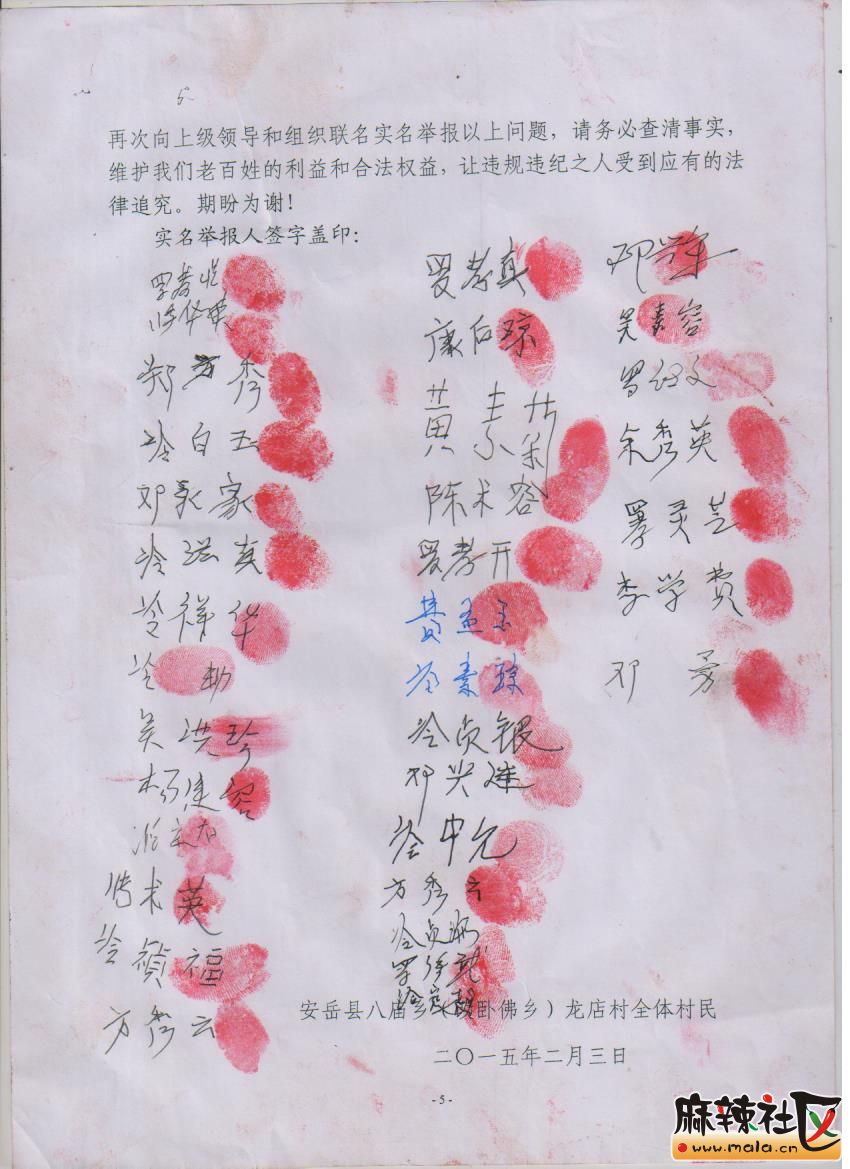 再次向上级领导和组织联名实名举报以上问题，请务必查清事实，
维护我们老百姓的利益和合法权益，让违规违纪之人受到应有的法
律追究。期盼为谢！
实名举报人签字盖印：
郑 秀
冷白玉
邓 家
冷 
冷祥华
冷 勐
吴洪珍
杨建容
术英
冷祯福
方秀云
罗孝真
康后琼
黄素
陈术容
罗孝开
黄孟
冷素琼
冷贞银
邓兴建
冷中允
方秀云
冷贞
邓兴
吴素容
罗 文
余秀英
罗灵芝
李学贵
邓 勇
安岳县八庙乡 卧佛乡）龙店村全体村民
二〇一五年二月三日
-5-
麻辣社区
www.mala.cn